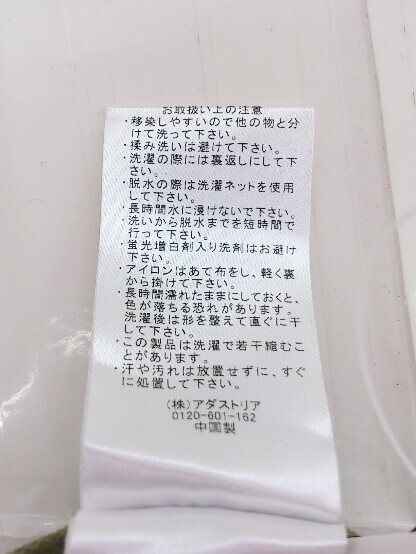 お取扱い上の注意
・移染しやすいので他の物と分
けて洗って下さい。
・揉み洗いは避けて下さい。
・洗濯の際には裏返しにして下
さい。
・脱水の際は洗濯ネットを使用
して下さい。
・長時間水に浸けないで下さい。
・洗いから脱水までを短時間で
行って下さい。
・蛍光増白剤入り洗剤はお避け
下さい。
・アイロンはあて布をし、軽く裏
から掛けて下さい。
・長時間濡れたままにしておくと、
色が落ちる恐れがあります。
洗濯後は形を整えて直ぐに干
して下さい。
・この製品は洗濯で若干縮むこ
とがあります。
・汗や汚れは放置せずに、すぐ
に処置して下さい。
(株)アダストリア
0120-601-162
中国製